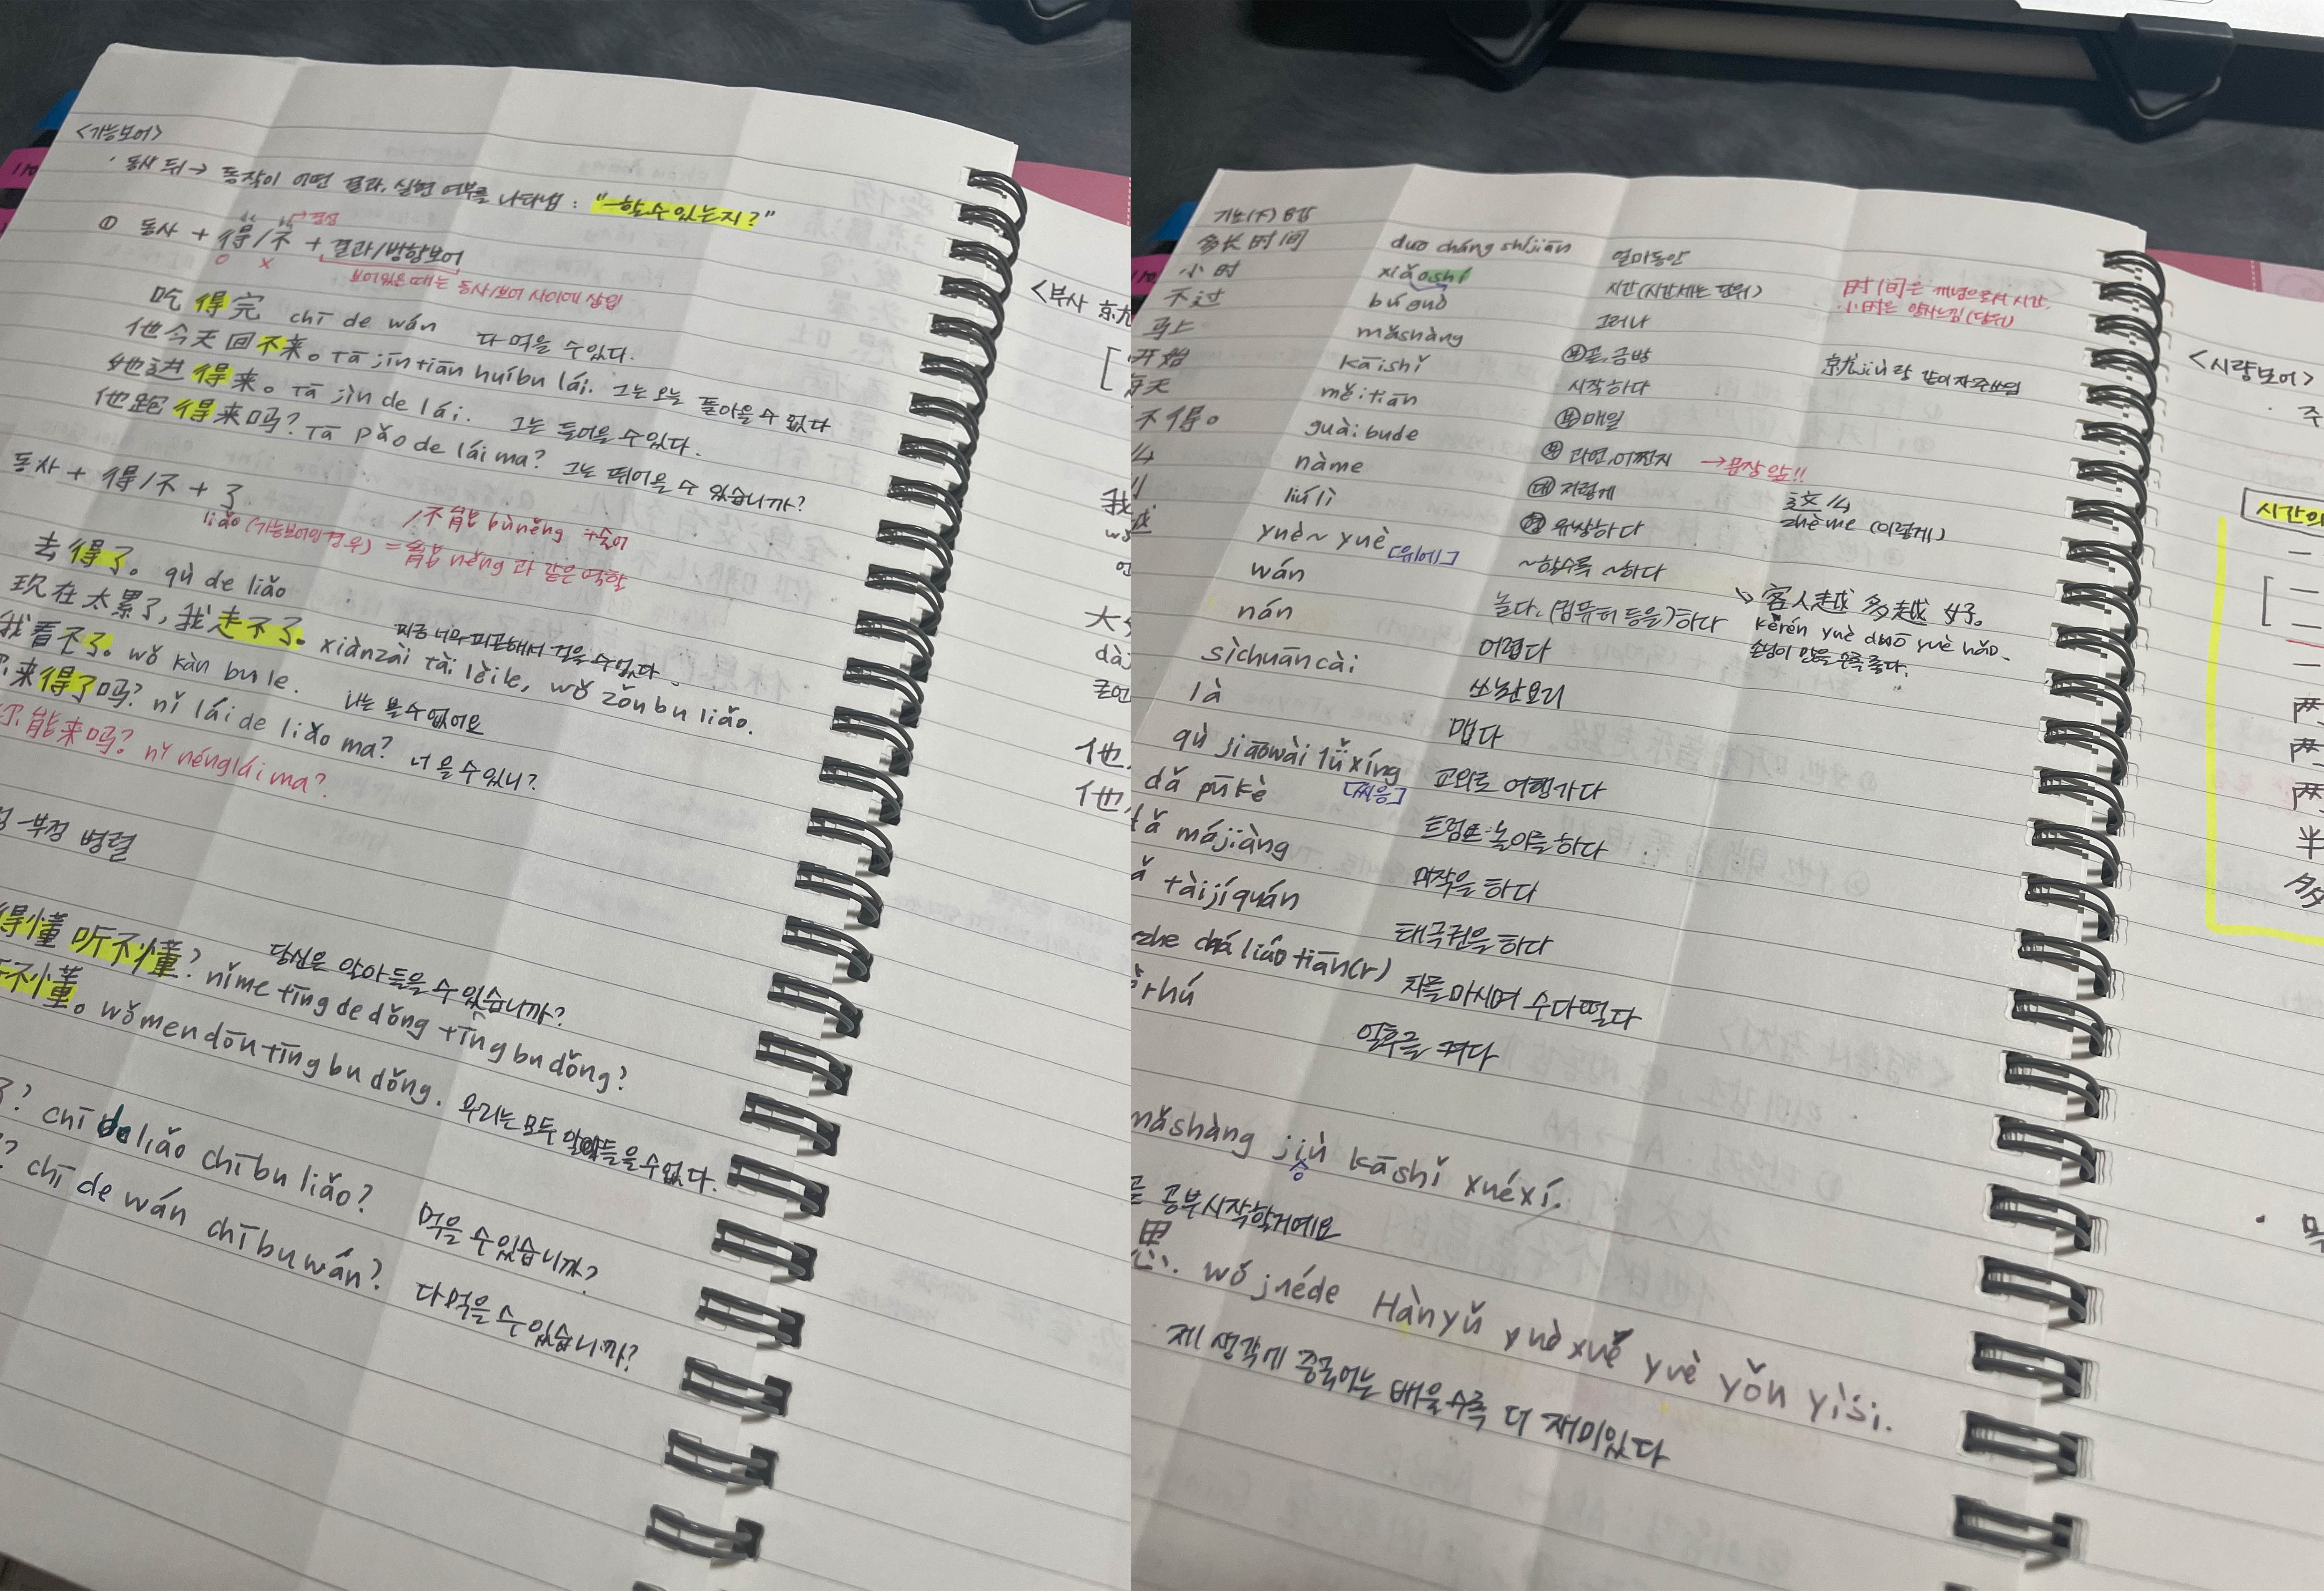 <가능보어>
· 동사 뒤 → 동작이 어떤 결과, 실현 여부를 나타냄 : "~할 수 있는지?"
→경성
① 동사 + 得/不 + 결과/방향보어
O X
보어있을 때는 동사/보어 사이에 삽입
吃得完 chī de wán 다 먹을 수 있다.
他今天回不来。 Tā jīntiān huíbu lái. 그는 오늘 돌아올 수 없다
她进得来。 Tā jìn de lái. 그는 들어올 수 있다.
他跑得来吗? Tā pǎo de lái ma? 그는 뛰어올 수 있습니까?
동사 + 得/不 + 了
liǎo (가능보어인 경우) = 能 néng 과 같은 역할
/不能 bùnéng +술어
去得了。 qù de liǎo
现在太累了, 我走不了。 xiànzài tài lèile, wǒ zǒu bu liǎo.
지금 너무 피곤해서 걸을 수 없다.
我看不了。 wǒ kàn bu le. 나는 볼 수 없어요
来得了吗? nǐ lái de liǎo ma? 너 올 수 있니?
能来吗? nǐ néng lái ma?
부정 병렬
得懂 听不懂? nǐme tīng de dǒng tīng bu dǒng?
당신은 알아들을 수 있습니까?
不懂。 wǒmen dōu tīng bu dǒng. 우리는 모두 알아들을 수 없다.
? chī de liǎo chī bu liǎo? 먹을 수 있습니까?
? chī de wán chī bu wán? 다 먹을 수 있습니까?
<부사 就
我
大
dà
他
他
多长时间 duō cháng shíjiān 얼마동안
小时 xiǎoshí 시간(시간세는 단위) 时间은 개념으로서 시간,
小时은 양사느낌(단위)
不过 búguò 그러나
马上 mǎshàng 부 곧, 금방 就jiù랑 같이 자주쓰임
开始 kāishǐ 시작하다
每天 měitiān 부 매일
不得。 guàibude 부 과연, 어쩐지 →문장 앞!!
么 nàme 대 저렇게 这么
zhème (이렇게)
liúlì 형 유창하다
越 yuè~ yuè [위에] ~할수록 ~하다
wán 놀다, (컴퓨터 등을)하다 ↳ 客人越多越好。
kèrén yuè duō yuè hǎo.
손님이 많을수록 좋다.
nán 어렵다
sìchuāncài 쓰촨요리
là 맵다
qù jiāowài lǚxíng [씨응] 교외로 여행가다
dǎ pūkè 트럼프 놀이를 하다
dǎ májiàng 마작을 하다
ǎ tàijíquán 태극권을 하다
zhe chá liáotiān(r) 차를 마시며 수다떨다
rhú 얼후를 켜다
mǎshàng jiù kāshǐ xuéxí.
공부시작할거예요
思. wǒ juéde Hànyǔ yuè xué yuè yǒu yìsi.
제 생각에 중국어는 배울수록 더 재미있다
<시량보어>
시간의
两
两
两
半
多